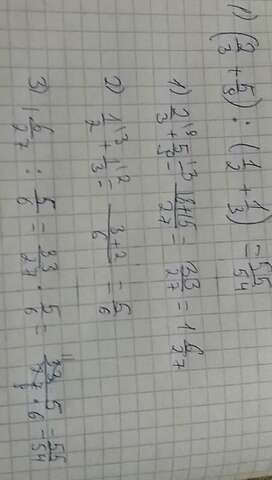 1) (2/3 + 5/9) : (1/2 + 1/3) = 55/54
1) 2/3 + 5/9 = 18+15/27 = 33/27 = 1 6/27
2) 1/2 + 1/3 = 3+2/6 = 5/6
3) 1 6/27 : 5/6 = 33/27 · 5/6 = 55/54